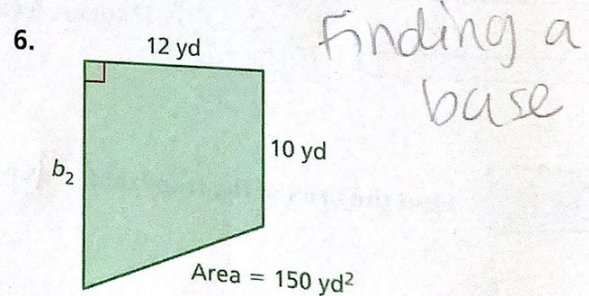 6.
12 yd
Finding a
base
b₂
10 yd
Area = 150 yd²